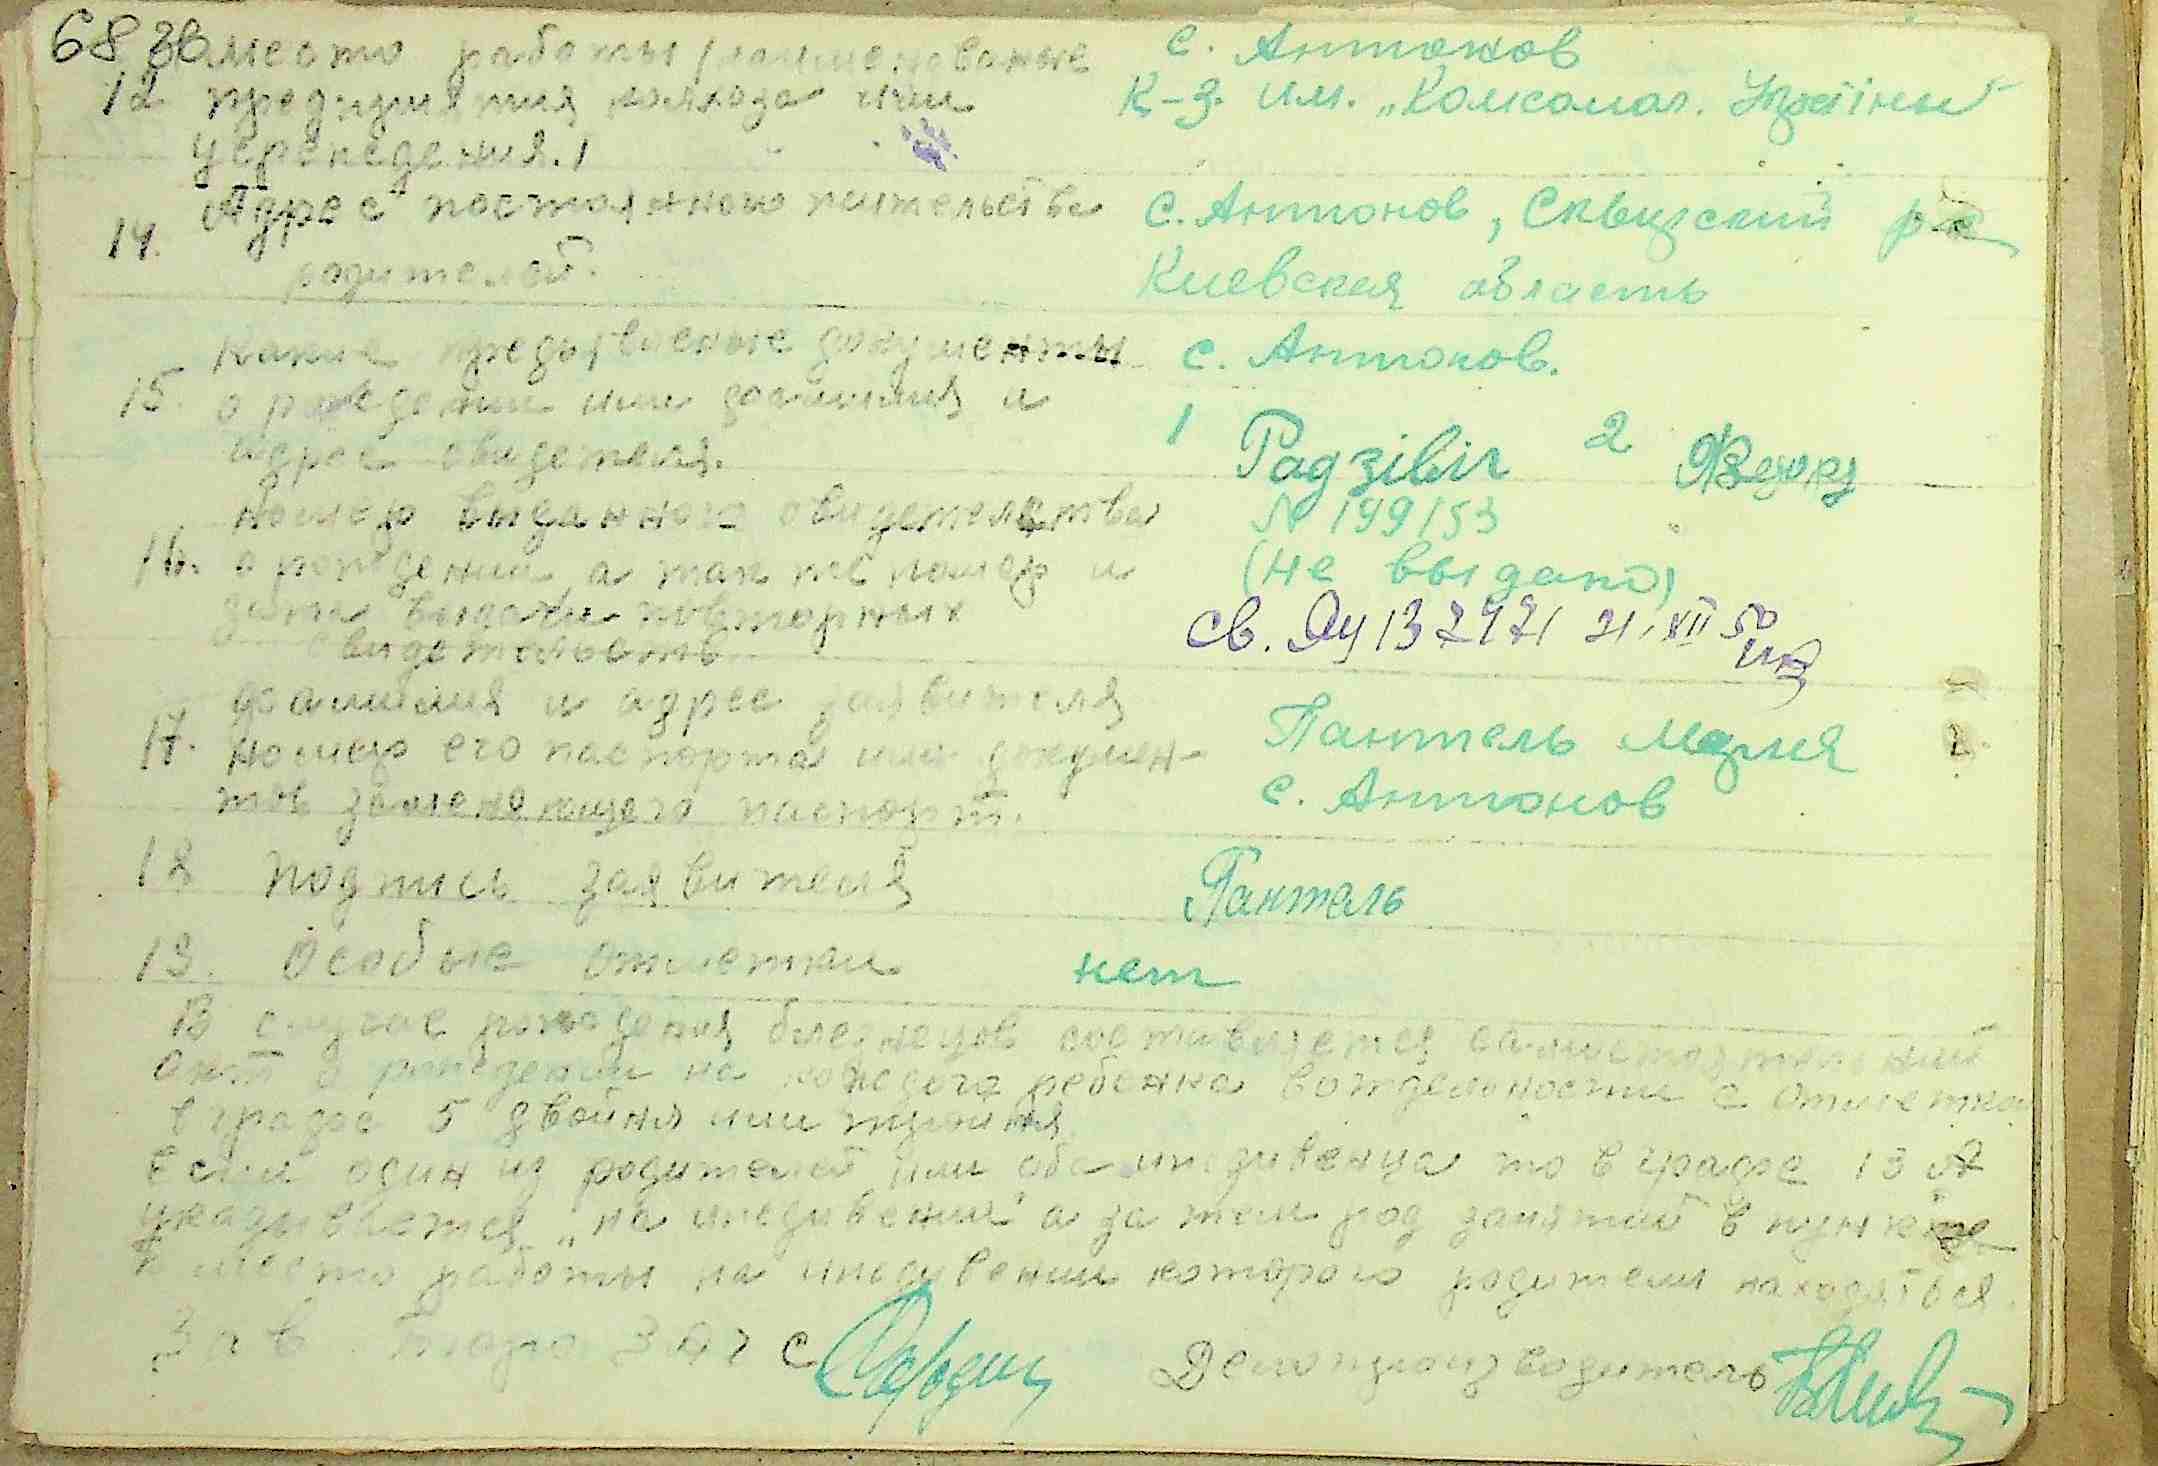 68 зв место работы (наименование с. Антонов
12 предприятия колхоза или К-з. им. „Комсомол. України"
учреждения.)
14. Адрес постоянного жительства с. Антонов, Сквирский р-н
родителей. Киевская область
Какие предъявленые документы с. Антонов.
15. о рождении или фамилия и 1 Радзівіл 2
адрес свидетеля.
Номер выданного свидетельства N 199153
16. о рождении а так же номер и (не выдано)
даты выдачи повторных св. 137471 21/XII 50
свидетельств
фамилия и адрес заявителя
17. номер его паспорта или докумен- Пантель Мария
тов заменяющего паспорт. с. Антонов
18 Подпись заявителя Панталь
19. Особые отметки нет
В случае рождения близнецов составляется самостоятельный
акт о рождении на каждого ребенка в отдельности с отметкой
в графе 5 двойня или тройня
Если один из родителей или оба иждивенца то в графе 13 А
указывается „на иждивении" а за тем род занятий в пункте
место работы на иждивении которого родители находяться.
Зав. бюро ЗАГС Делопроизводитель